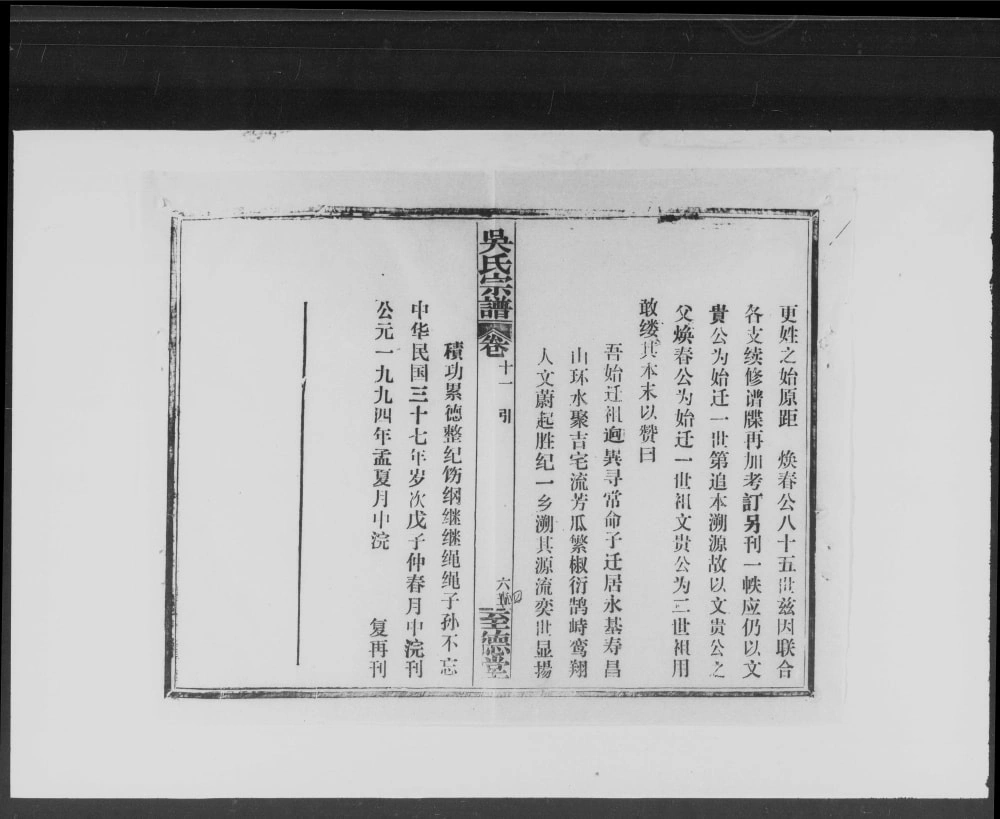 更姓之始原距　焕春公八十五世兹因联合
各支续修谱牒再加考訂另刊一帙应仍以文
貴公为始迁一世第追本溯源故以文贵公之
父焕春公为始迁一世祖文贵公为二世祖用
敢缕其本末以赞曰
吾始迁祖迥異寻常命子迁居永基寿昌
山环水聚吉宅流芳瓜繁椒衍鹄峙鸾翔
人文蔚起胜纪一乡溯其源流奕世显揚
吳氏宗譜 卷 十一 引 六 至德堂
積功累德整纪饬纲继继绳绳子孙不忘
中华民国三十七年岁次戊子仲春月中浣刊
公元一九九四年孟夏月中浣　复再刊